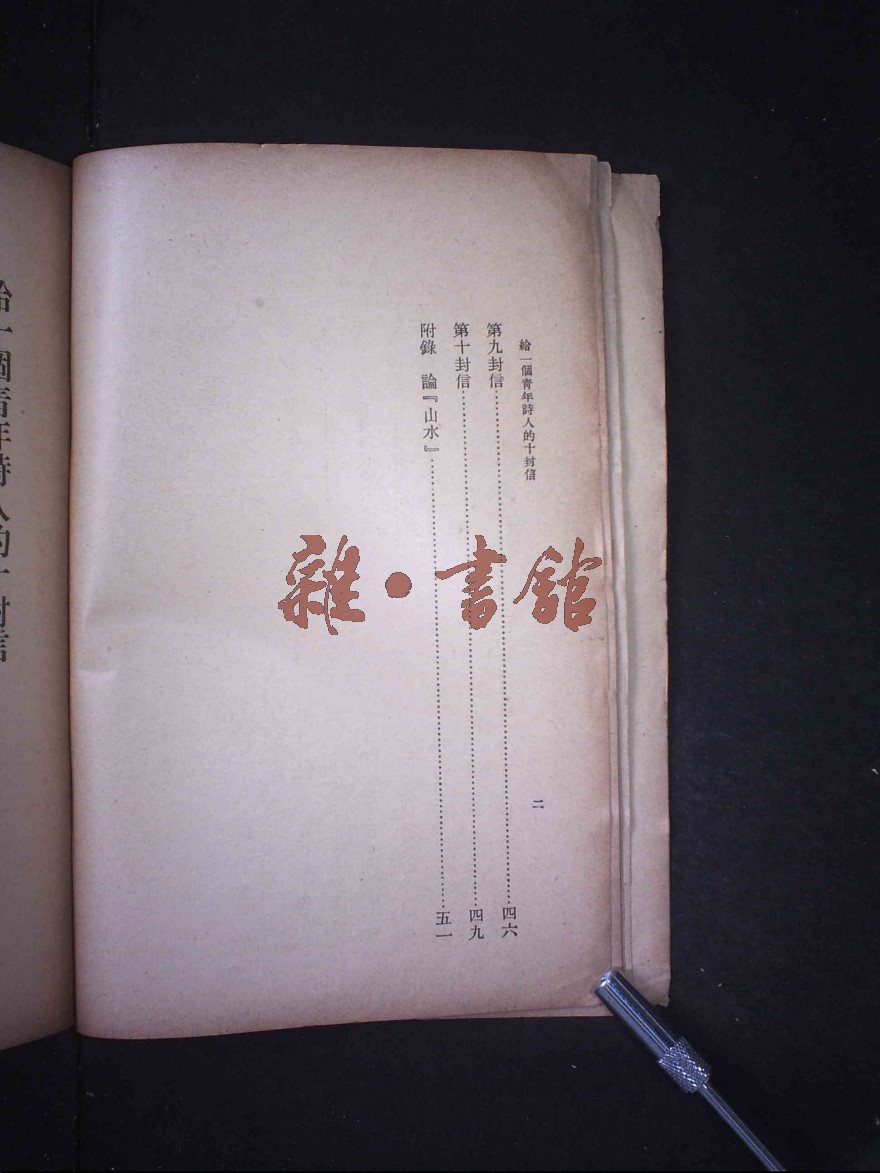 給一個青年詩人的十封信
二
第九封信……四六
第十封信……四九
附錄　論『山水』……五一
雜・書館
給一個青年詩人的十封信